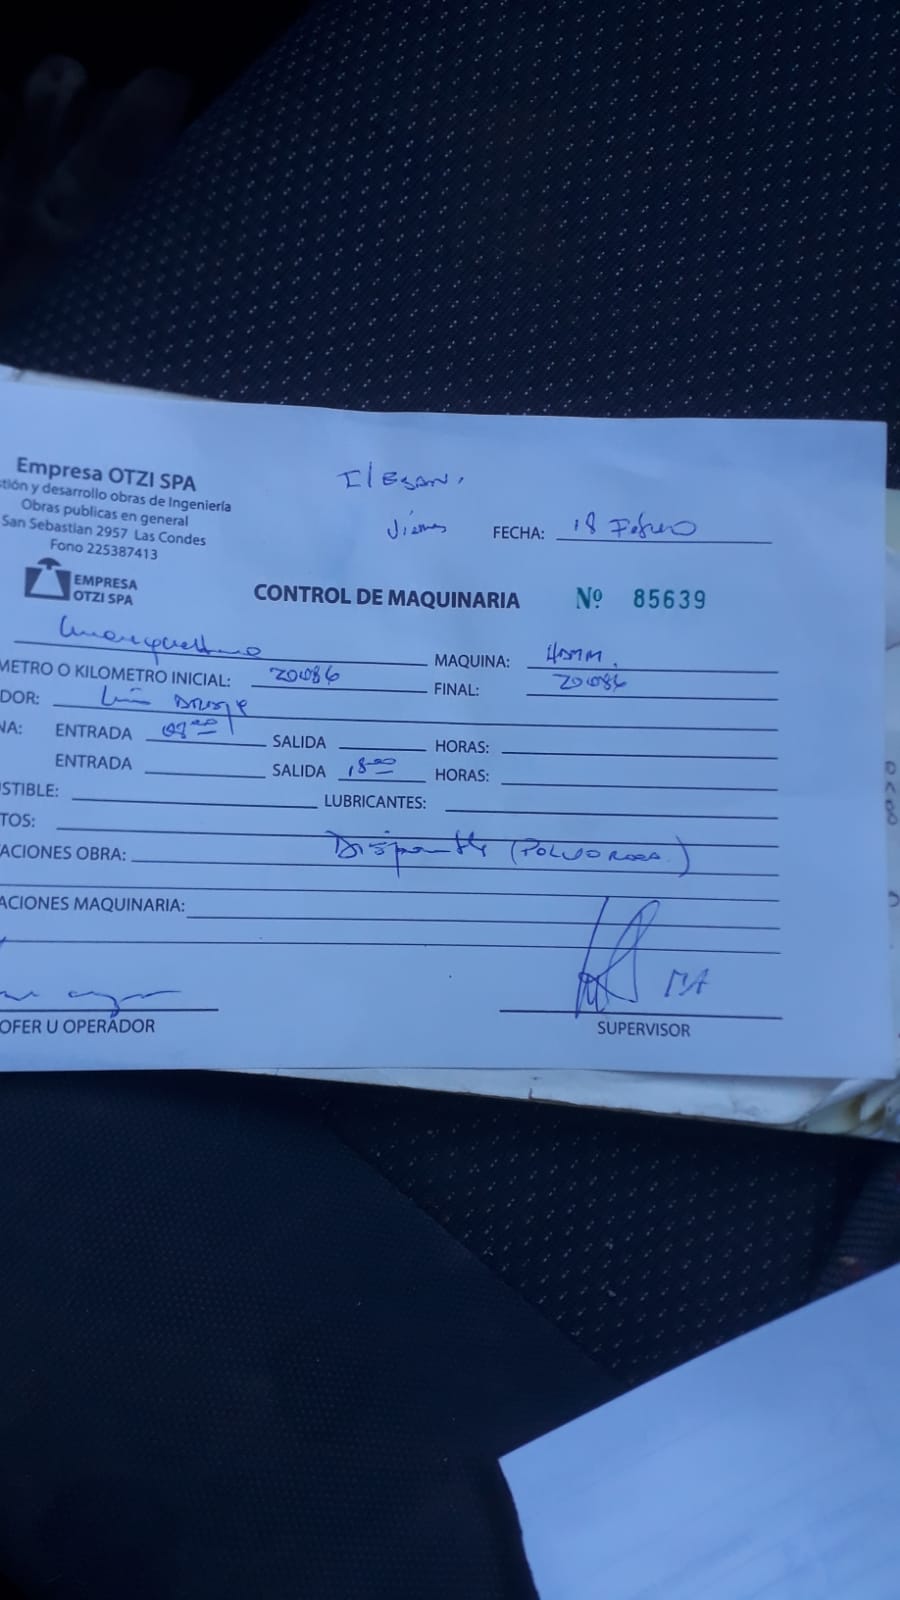 Empresa OTZI SPA
stión y desarrollo obras de Ingeniería
Obras publicas en general
San Sebastian 2957 Las Condes
Fono 225387413
EMPRESA
OTZI SPA
Viernes FECHA: 18 Febrero
CONTROL DE MAQUINARIA Nº 85639
MAQUINA:
METRO O KILOMETRO INICIAL: 20086 FINAL: 20086
DOR: Luis
NA: ENTRADA 08:00 SALIDA HORAS:
ENTRADA SALIDA 18:00 HORAS:
STIBLE: LUBRICANTES:
TOS:
ACIONES OBRA: Disponible
ACIONES MAQUINARIA:
OFER U OPERADOR SUPERVISOR